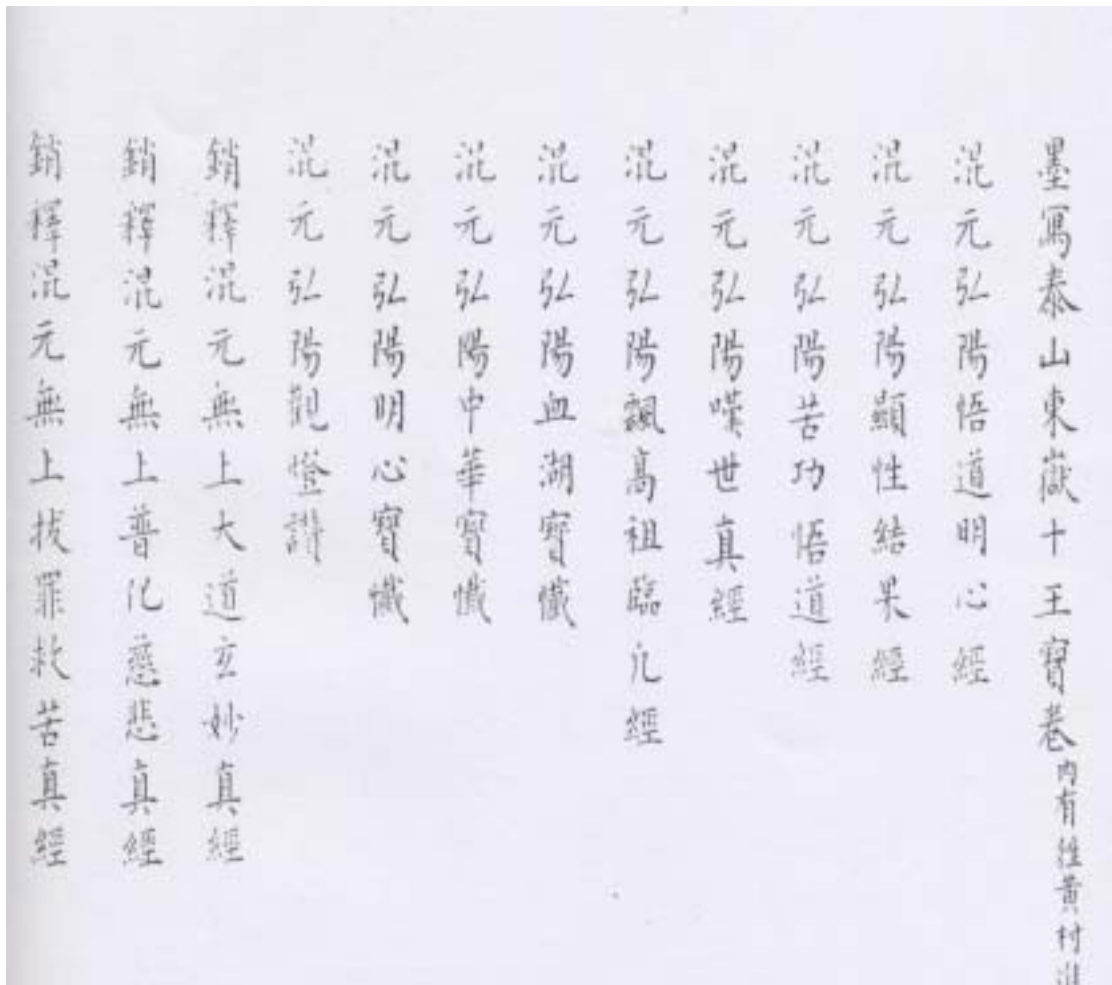 墨寫泰山東嶽十王寶卷內有往黃村
混元弘陽悟道明心經
混元弘陽顯性結果經
混元弘陽苦功悟道經
混元弘陽嘆世真經
混元弘陽飄高祖臨凡經
混元弘陽血湖寶懺
混元弘陽中華寶懺
混元弘陽明心寶懺
混元弘陽觀燈讚
銷釋混元無上大道玄妙真經
銷釋混元無上普化慈悲真經
銷釋混元無上拔罪救苦真經